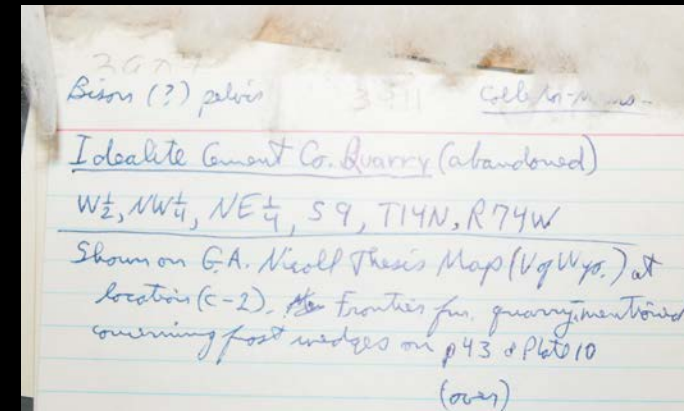 Bison (?) pelvis
Idealite Cement Co. Quarry (abandoned)
W½, NW¼, NE¼, S9, T14N, R74W
Shown on G.A. Nicoll Thesis Map (U of Wyo.) at
location (C-2). Frontier fm. quarry, mentioned
concerning frost wedges on p43 & Plate 10
(over)